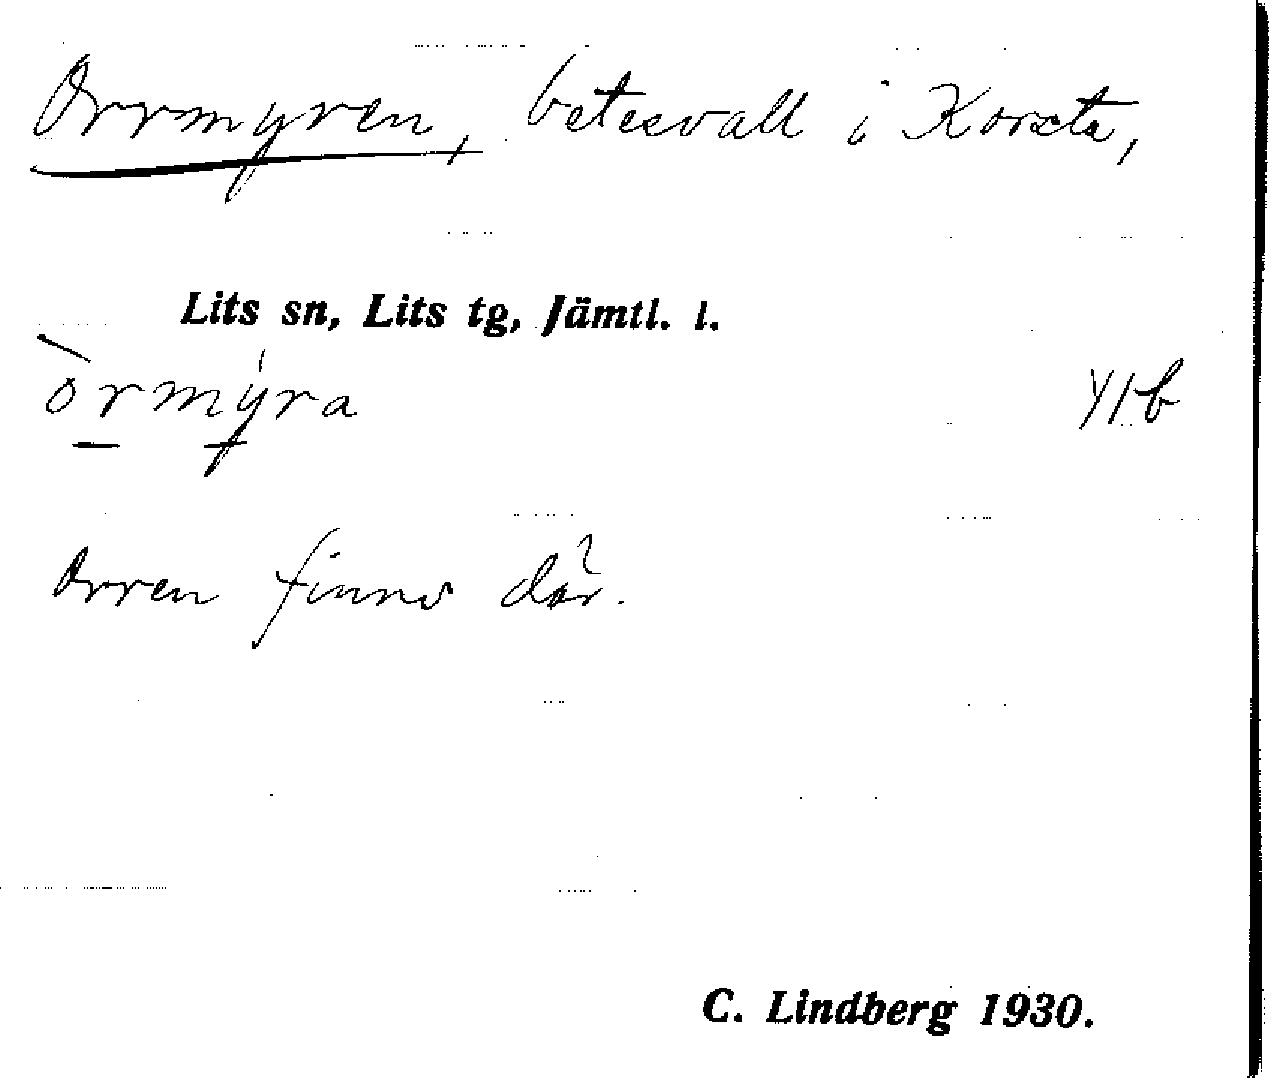 Orrmyren, betesvall i Korsta,
Lits sn, Lits tg, Jämtl. l.
òrmýra
Orren finns där.
C. Lindberg 1930.